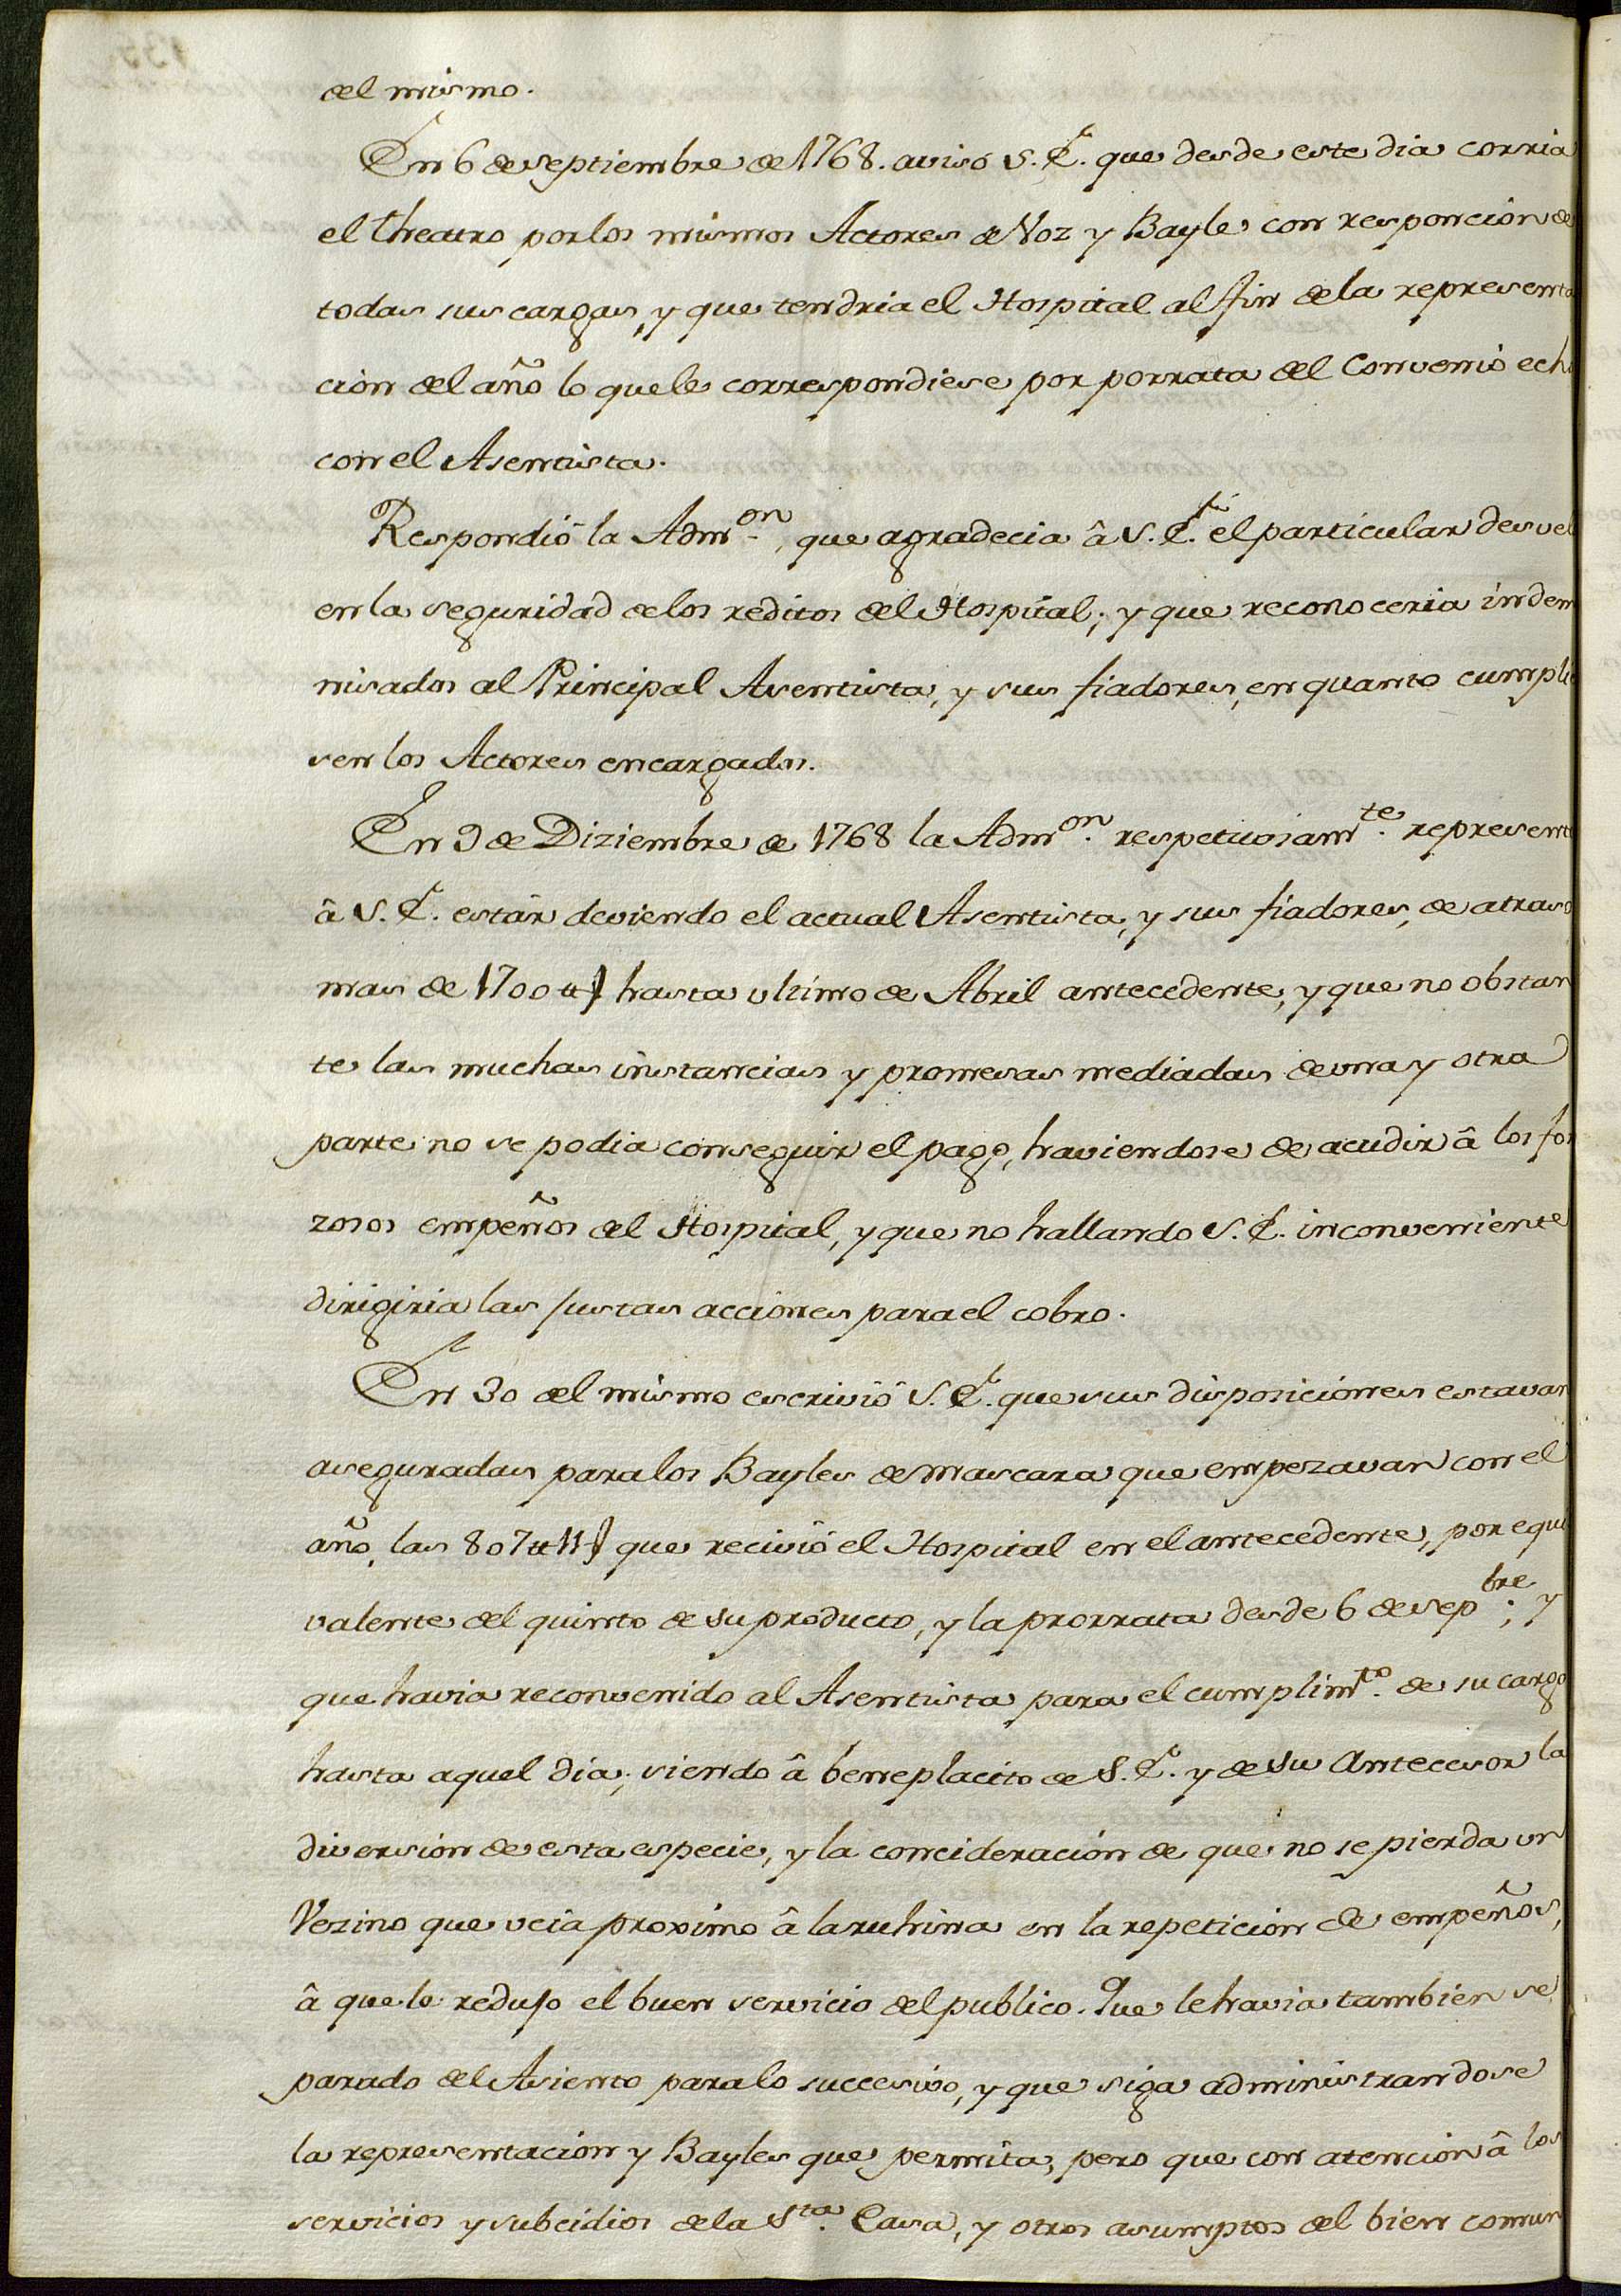 del mismo.
En 6 de Septiembre de 1768. avisó S. E. que desde este dia corria
el theatro por los mismos Actores de Voz y Bayle con responcion de
todas sus cargas, y que tendria el Hospital al fin de la representa
cion del año lo que le correspondiese por porrata del Convenio echo
con el Asentista.
Respondió la Admon, que agradecia â S. E. el particular desvel
en la seguridad de los reditos del Hospital; y que reconoceria indem
nisados al Principal Asentista, y sus fiadores, en quanto cumplie
sen los Actores encargados.
En 9 de Diziembre de 1768 la Admon. respetuosamte. represent
â S. E. estár deviendo el actual Asentista, y sus fiadores, de atraso
mas de 1700 ₶ hasta ultimo de Abril antecedente, y que no obstan
te las muchas instancias y promesas mediadas de una y otra
parte no se podia conseguir el pago, haviendose de acudir â los for
zosos empeños del Hospital, y que no hallando S. E. inconveniente
dirigiria las justas acciones para el cobro.
En 30 del mismo escrivió S. E. que sus disposiciones estavan
aseguradas para los Bayles de mascara que empezavan con el
año, las 807 ₶ 11 que recivió el Hospital en el antecedente, por equi
valente del quinto de su producto, y la prorrata desde 6 de Sepbre; y
que havia reconvenido al Asentista para el cumplimto. de su cargo
hasta aquel dia; siendo â beneplacito de S. E. y de su Antecesor la
diversion de esta especie, y la concideracion de que no se pierda un
Vezino que veía proximo â la ruhina en la repeticion de empeños,
â que le redujo el buen servicio del publico. Que le havia tambien se
parado del Asiento para lo succesivo, y que siga administrandose
la representacion y Bayles que permita; pero que con atencion â los
servicios y subcidios de la Sta. Casa, y otros asumptos del bien comun